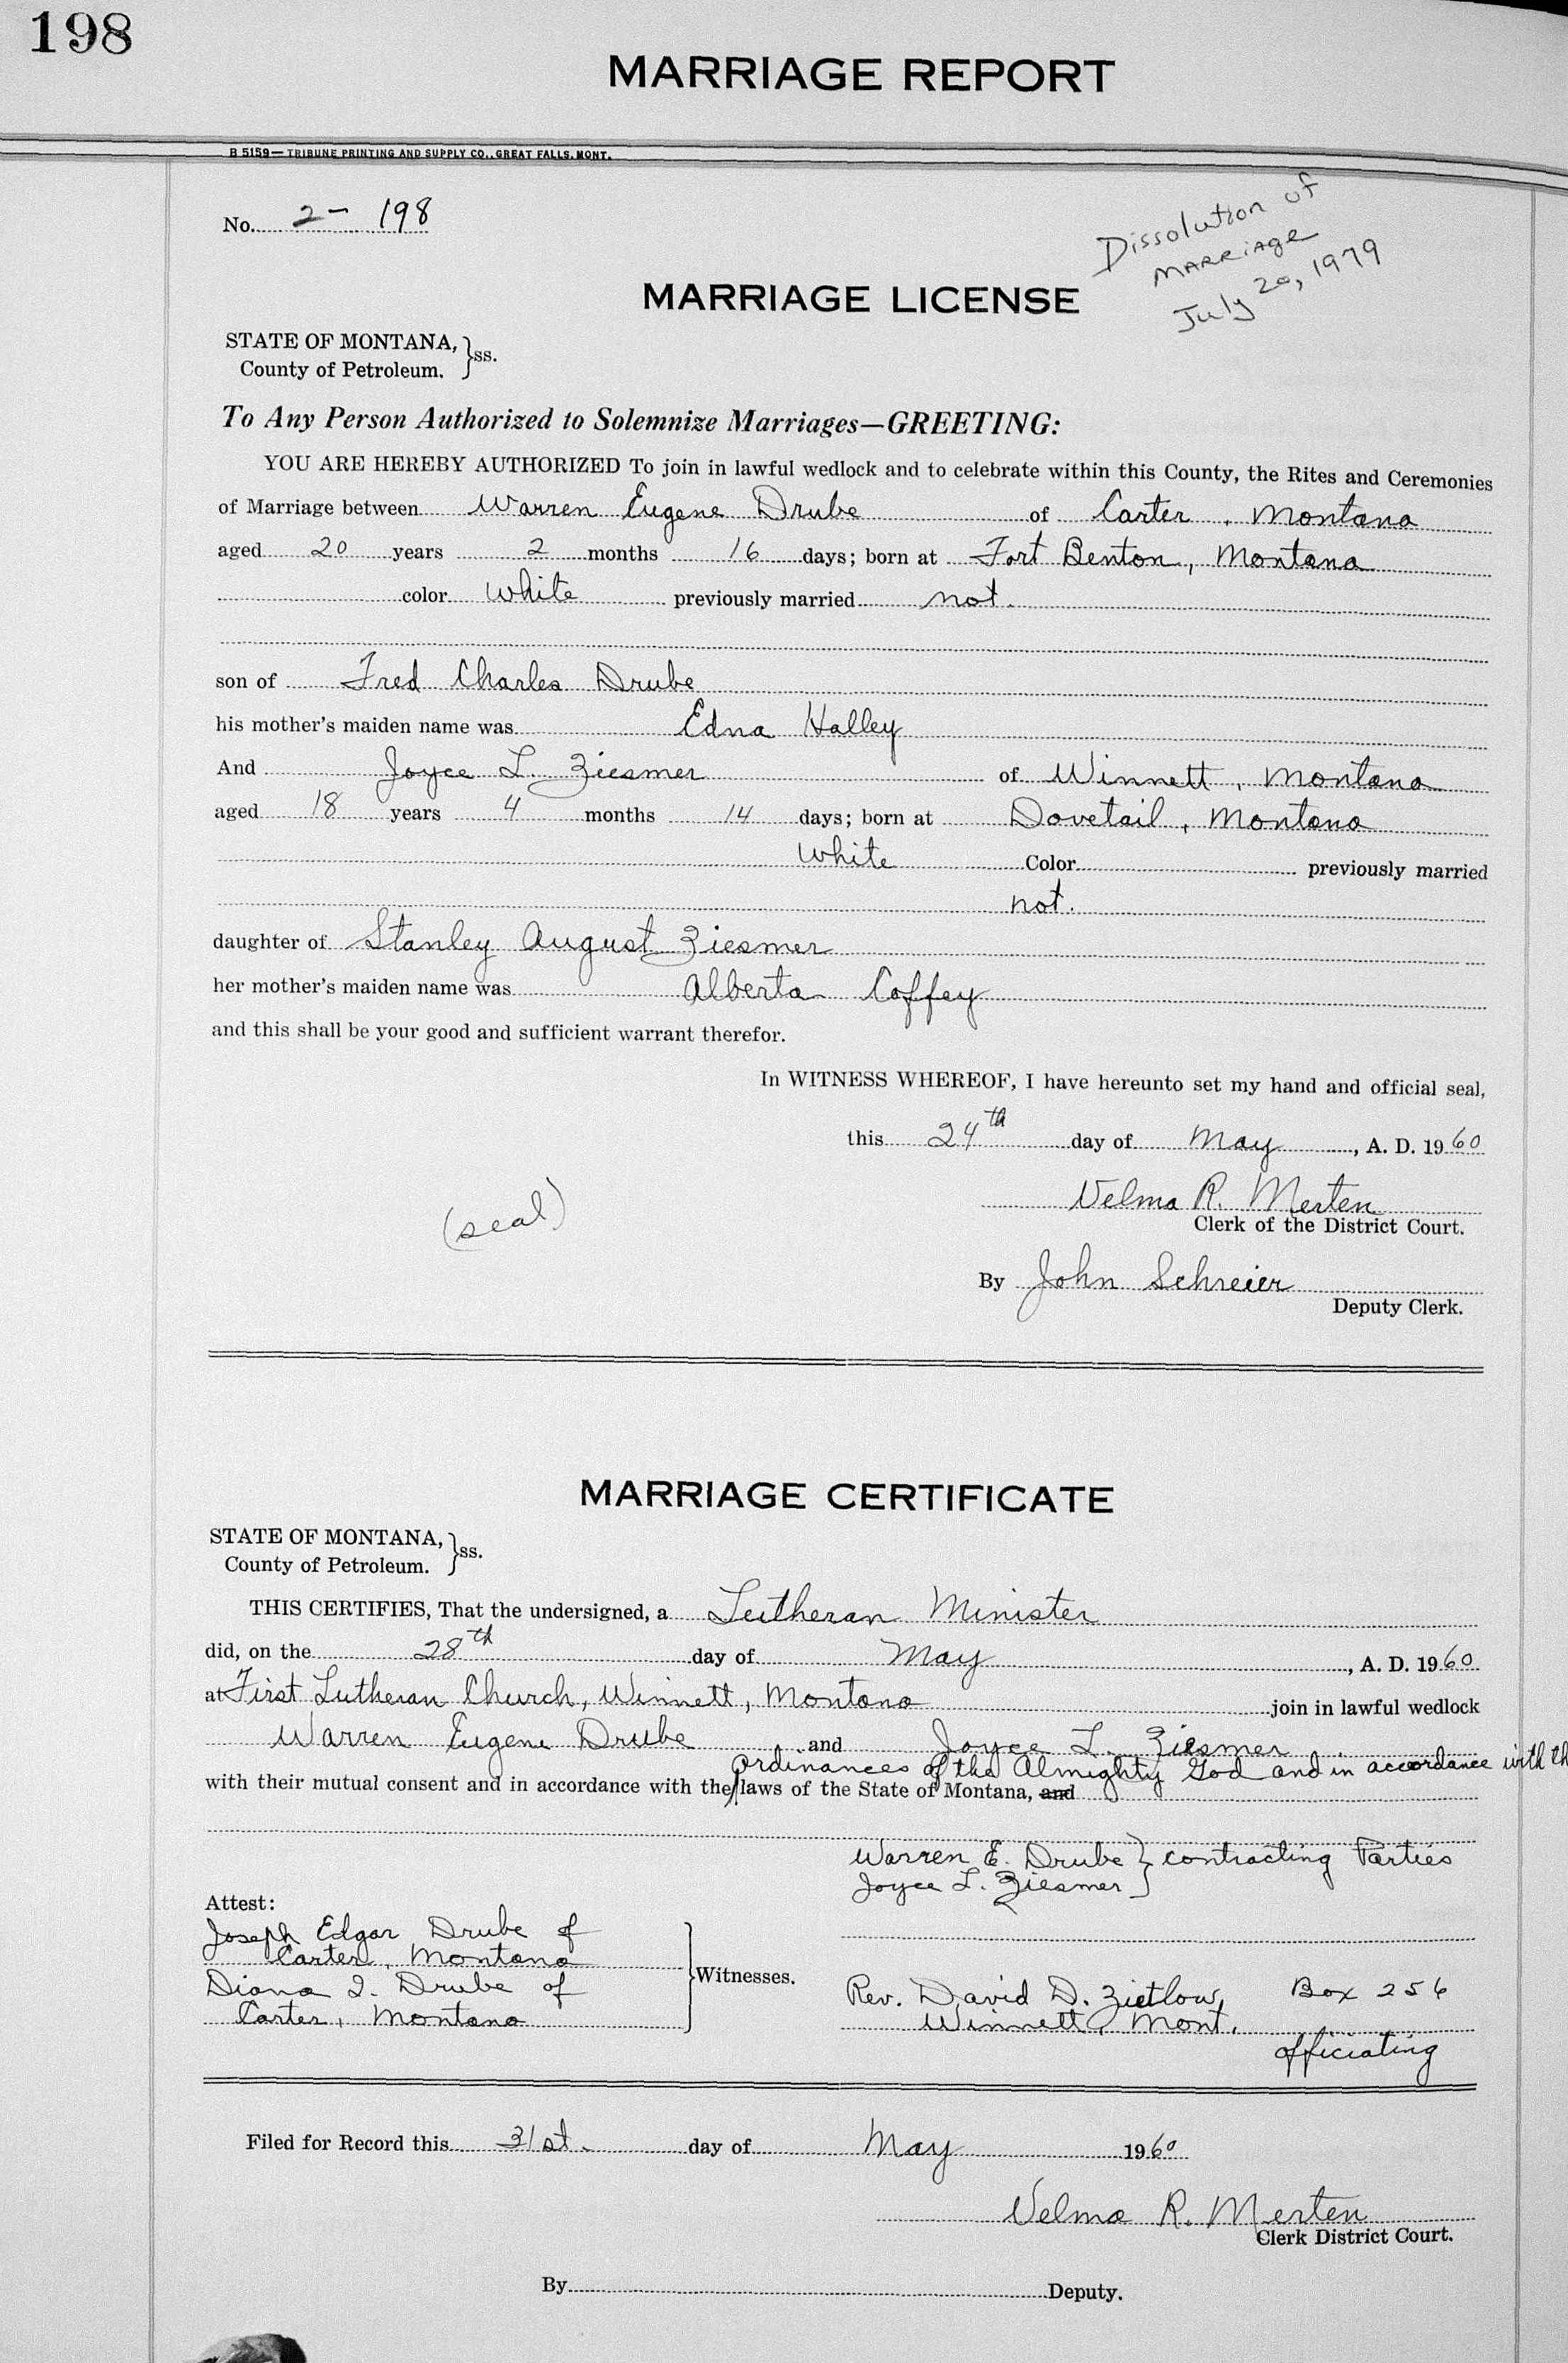 198
MARRIAGE REPORT
B 5159— TRIBUNE PRINTING AND SUPPLY CO., GREAT FALLS, MONT.
No. 2- 198
Dissolution of
Marriage
July 20, 1979
MARRIAGE LICENSE
STATE OF MONTANA, } ss.
County of Petroleum.
To Any Person Authorized to Solemnize Marriages—GREETING:
YOU ARE HEREBY AUTHORIZED To join in lawful wedlock and to celebrate within this County, the Rites and Ceremonies
of Marriage between Warren Eugene Drube of Carter, Montana
aged 20 years 2 months 16 days; born at Fort Benton, Montana
color White previously married not.
son of Fred Charles Drube
his mother's maiden name was Edna Halley
And Joyce L. Ziesmer of Winnett, Montana
aged 18 years 4 months 14 days; born at Dovetail, Montana
White Color previously married
not.
daughter of Stanley August Ziesmer
her mother's maiden name was Alberta Coffey
and this shall be your good and sufficient warrant therefor.
In WITNESS WHEREOF, I have hereunto set my hand and official seal,
this 24th day of May, A. D. 1960
Velma R. Merten
Clerk of the District Court.
(seal)
By John Schreier
Deputy Clerk.
MARRIAGE CERTIFICATE
STATE OF MONTANA, } ss.
County of Petroleum.
THIS CERTIFIES, That the undersigned, a Lutheran Minister
did, on the 28th day of May, A. D. 1960
at First Lutheran Church, Winnett, Montana join in lawful wedlock
Warren Eugene Drube and Joyce L. Ziesmer
ordinances of the Almighty God and in accordance with th
with their mutual consent and in accordance with the laws of the State of Montana, and
Warren E. Drube } contracting Parties
Joyce L. Ziesmer
Attest:
Joseph Edgar Drube of
Carter, Montana
Diana I. Drube of
Carter, Montana
Witnesses.
Rev. David D. Zietlow, Box 256
Winnett, Mont.
officiating
Filed for Record this 31st. day of May 1960
Velma R. Merten
Clerk District Court.
By Deputy.